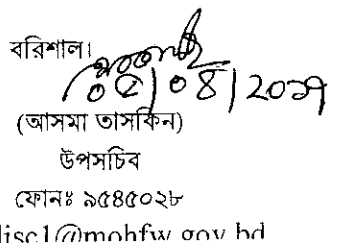 বরিশাল।
(আসমা তাসকিন)
উপসচিব
ফোনঃ ৯৫৪৫০২৮
disc1@mohfw.gov.bd